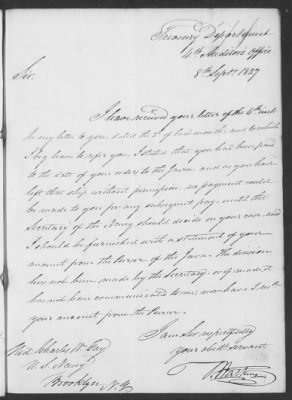 Treasury Department
4th Auditors Office
8th Sept. 1827
Sir,
I have received your letter of the 4th inst.
In my letter to you, dated the 2d of last month, and to which
I beg leave to refer you, I stated that you had been paid
to the date of your orders to the Java and as you have
left that ship without permission no payment could
be made to you for any subsequent pay, until the
Secretary of the Navy should decide on your case and
I should be furnished with a statement of your
account from the Purser of the Java. The decision
has not been made by the Secretary, or if made it
has not been communicated to me, nor have I rec'd
your account from the Purser.
I am Sir, respectfully
your obedt. servant
Mid. Charles W. Gay
U. S. Navy
Brooklyn N. Y.